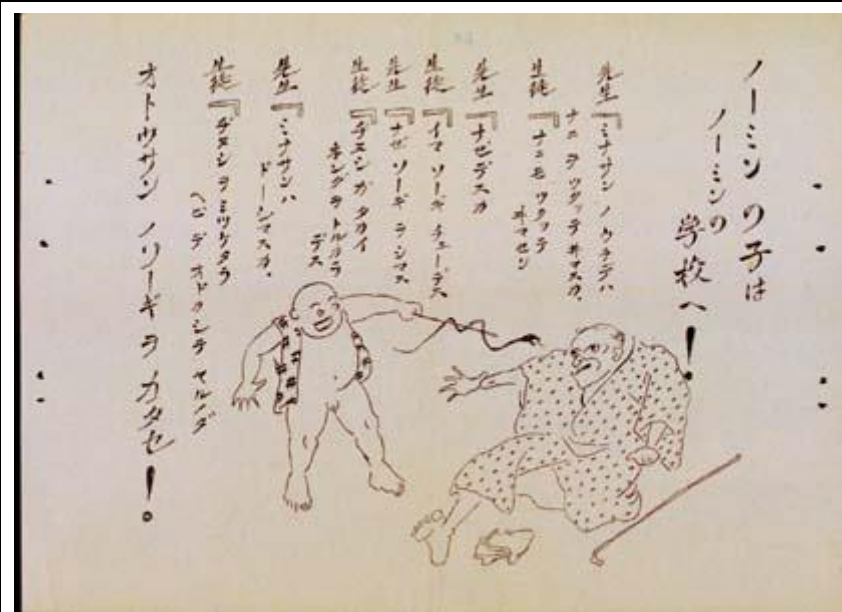 ノーミンの子は
ノーミンの
学校へ!
先生『ミナサン ノ ウチデハ
ナニ ヲ ツクッテ ヰマスカ、
生徒『ナニモ ツクッテ
ヰマセン
先生『ナゼデスカ
生徒『イマ ソーギ チューデス
先生『ナゼ ソーギ ヲ シマス
生徒『ヂヌシ ガ タカイ
ネングヲ トルカラ
デス
先生『ミナサンハ
ドーシマスカ、
生徒『ヂヌシ ヲ ミツケタラ
ヘビ デ オドカシテ ヤルノダ
オトウサン ノ ソーギ ヲ カタセ!。